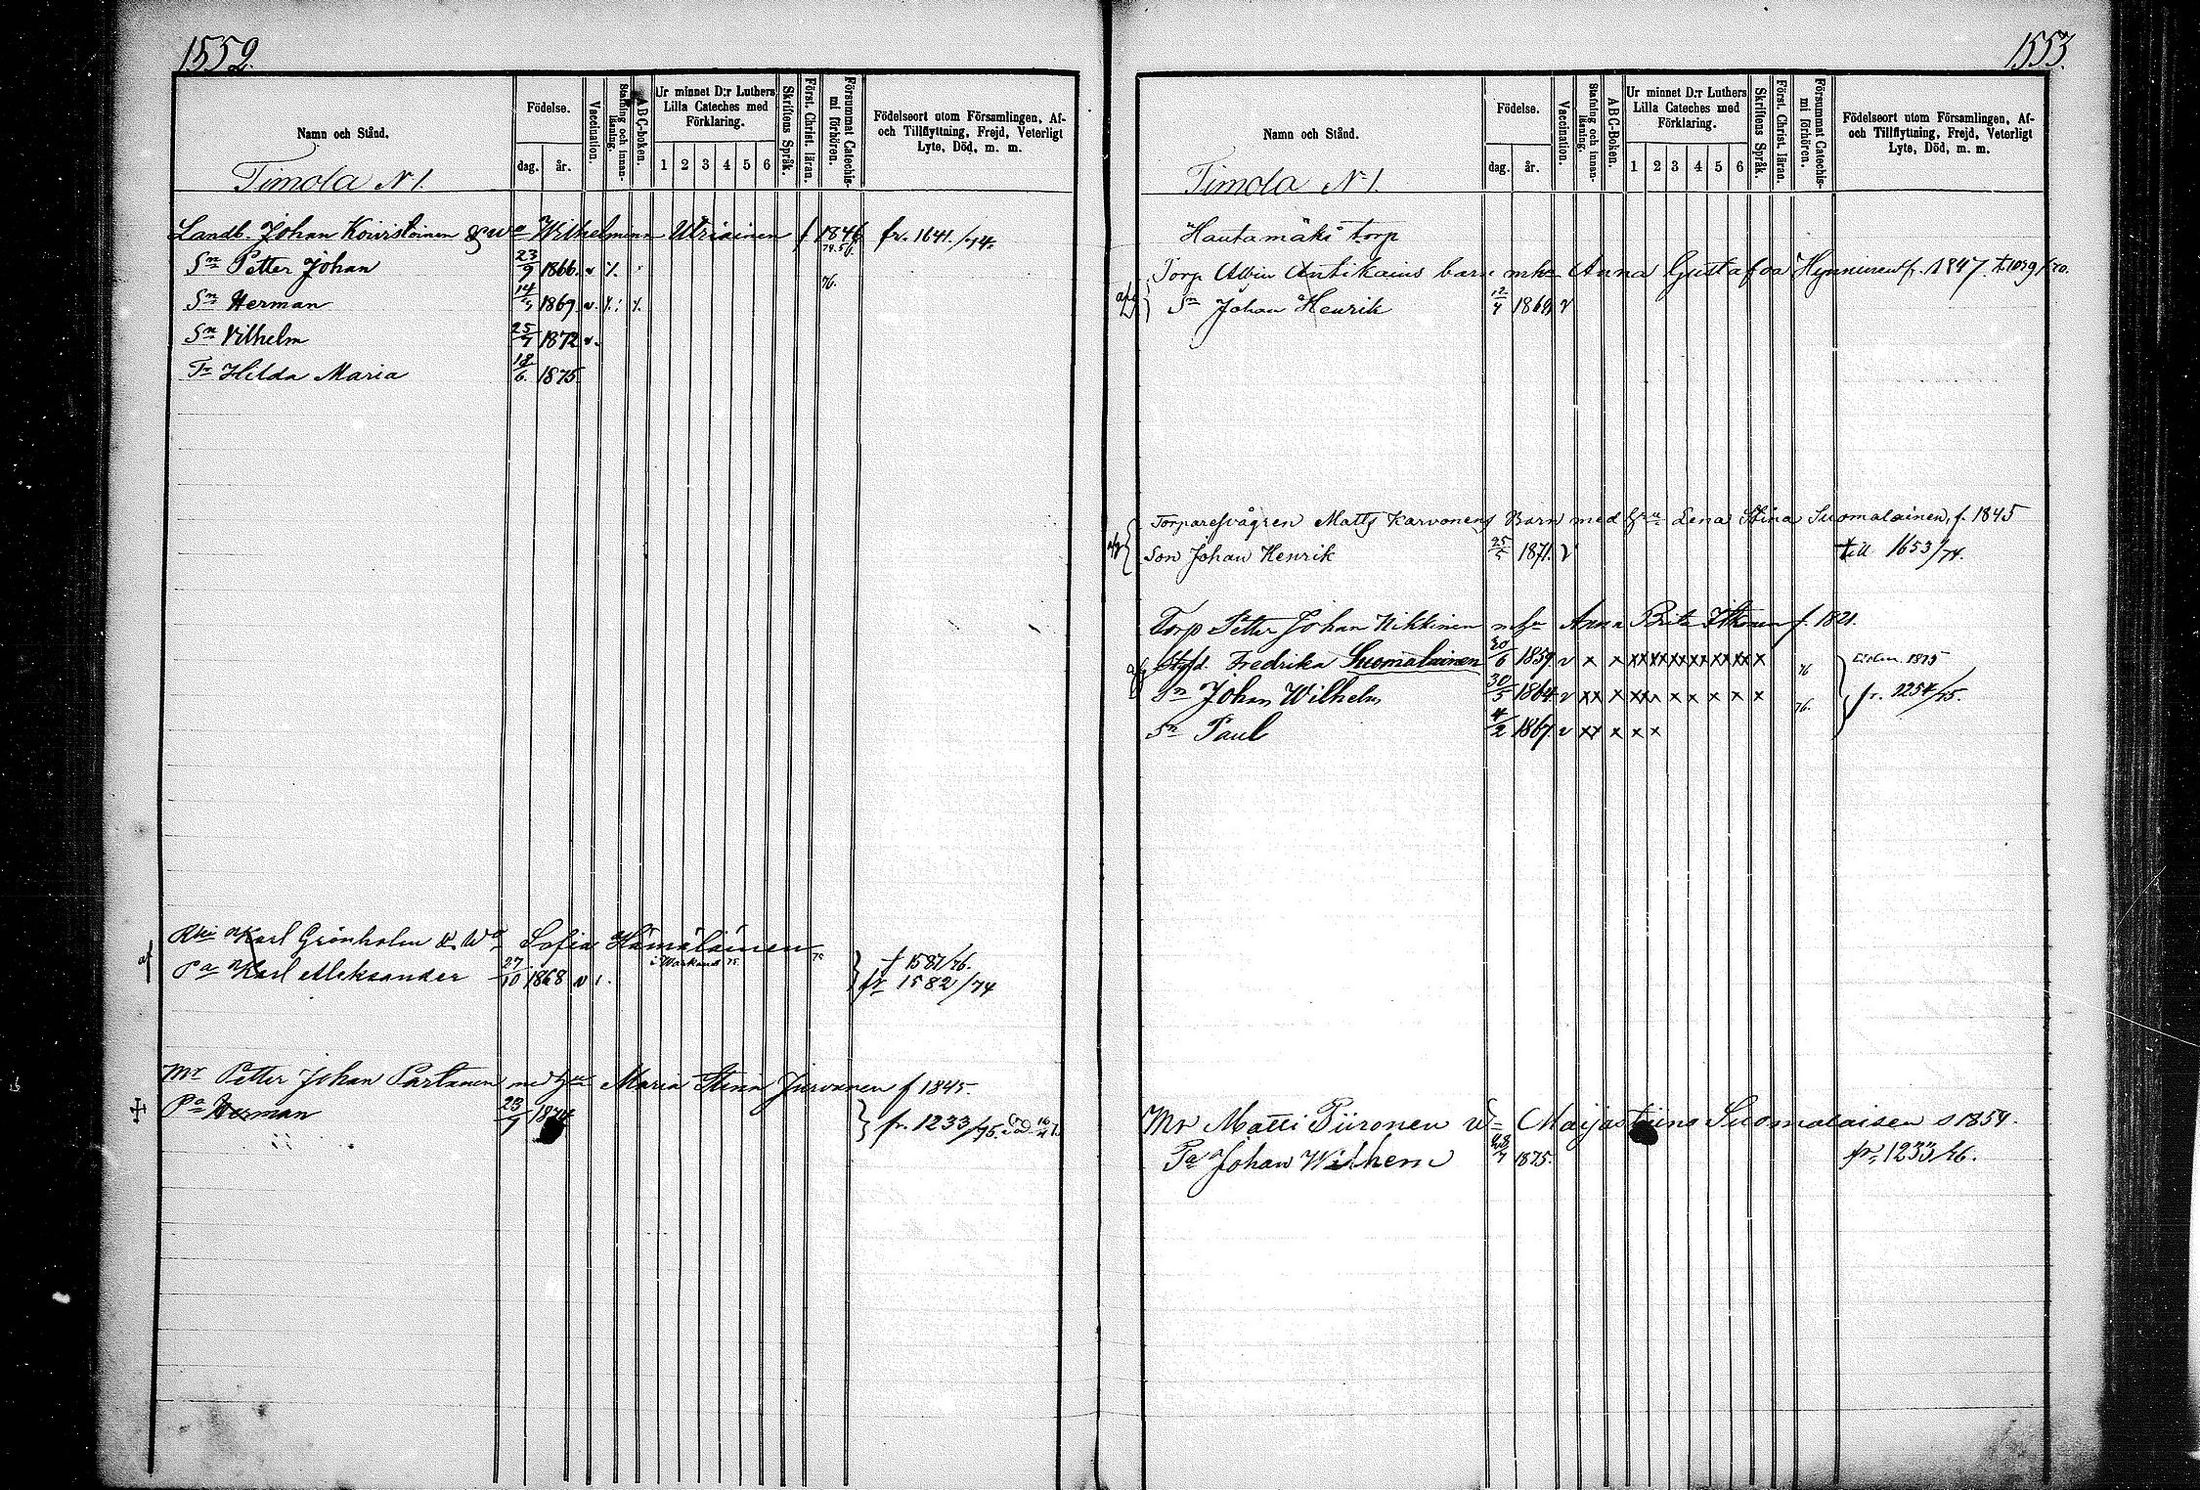 1552.
Namn och Stånd.
Födelse.
dag.
år.
Vaccination.
Stafning och innan-läsning.
ABC-boken.
Ur minnet D:r Luthers
Lilla Cateches med
Förklaring.
1 2 3 4 5 6
Skriftens Språk.
Först. Christ. läran.
Försummat Catechis-
mi förhören.
Födelseort utom Församlingen, Af-
och Tillflyttning, Frejd, Veterligt
Lyte, Död, m. m.
Timola N 1.
Landb. Johan Koivistoinen Wilhelmina Utriainen f 1846 fr. 1641./74.
Sn Petter Johan 23/9 1866. v
Sn Herman 1869. v. 76.
Sn Vilhelm 1872 v.
Tr Hilda Maria 18/6. 1875.
Karl Grönholm Sofia Hämäläinen 75
af Pa Karl Aleksander 27/10 1868 v † 1587/76.
fr 1582/74
Mr Petter Johan Partanen med Maria Stina Jurvanen f 1845.
Pa Herman 1874 fr. 1233/75.
1553.
Namn och Stånd.
Födelse.
dag.
år.
Vaccination.
Stafning och innan-läsning.
ABC-Boken.
Ur minnet D:r Luthers
Lilla Cateches med
Förklaring.
1 2 3 4 5 6
Skriftens Språk.
Först. Christ. läran.
Försummat Catechis-
mi förhören.
Födelseort utom Församlingen, Af-
och Tillflyttning, Frejd, Veterligt
Lyte, Död, m. m.
Timola N 1.
"Hautamäki" torp
Torp Albin Antikains barn Anna Gustafva Hynninen f. 1847.
Sn Johan Henrik 1869 v
Torparesvågren Matts Karvonens Barn med Lena Stina Suomalainen, f. 1845
Son Johan Henrik 25/5 1871. v till 1653/74.
Torp Petter Johan Nikkinen Anna Brita Itkonen f. 1821.
Fredrika Suomalainen 20/6 1859 v x x xx xx xx xx xx xx x 76 1875
Sn Johan Wilhelm 30/5 1864 v xx x x x x x x x 76. fr. 2254/75.
Sn Paul 4/2 1867 v xx x x x
Mr Matti Piironen Maijastiina Suomalaisen s 1854.
Pa Johan Wilhem 1875. fr. 1233/76.